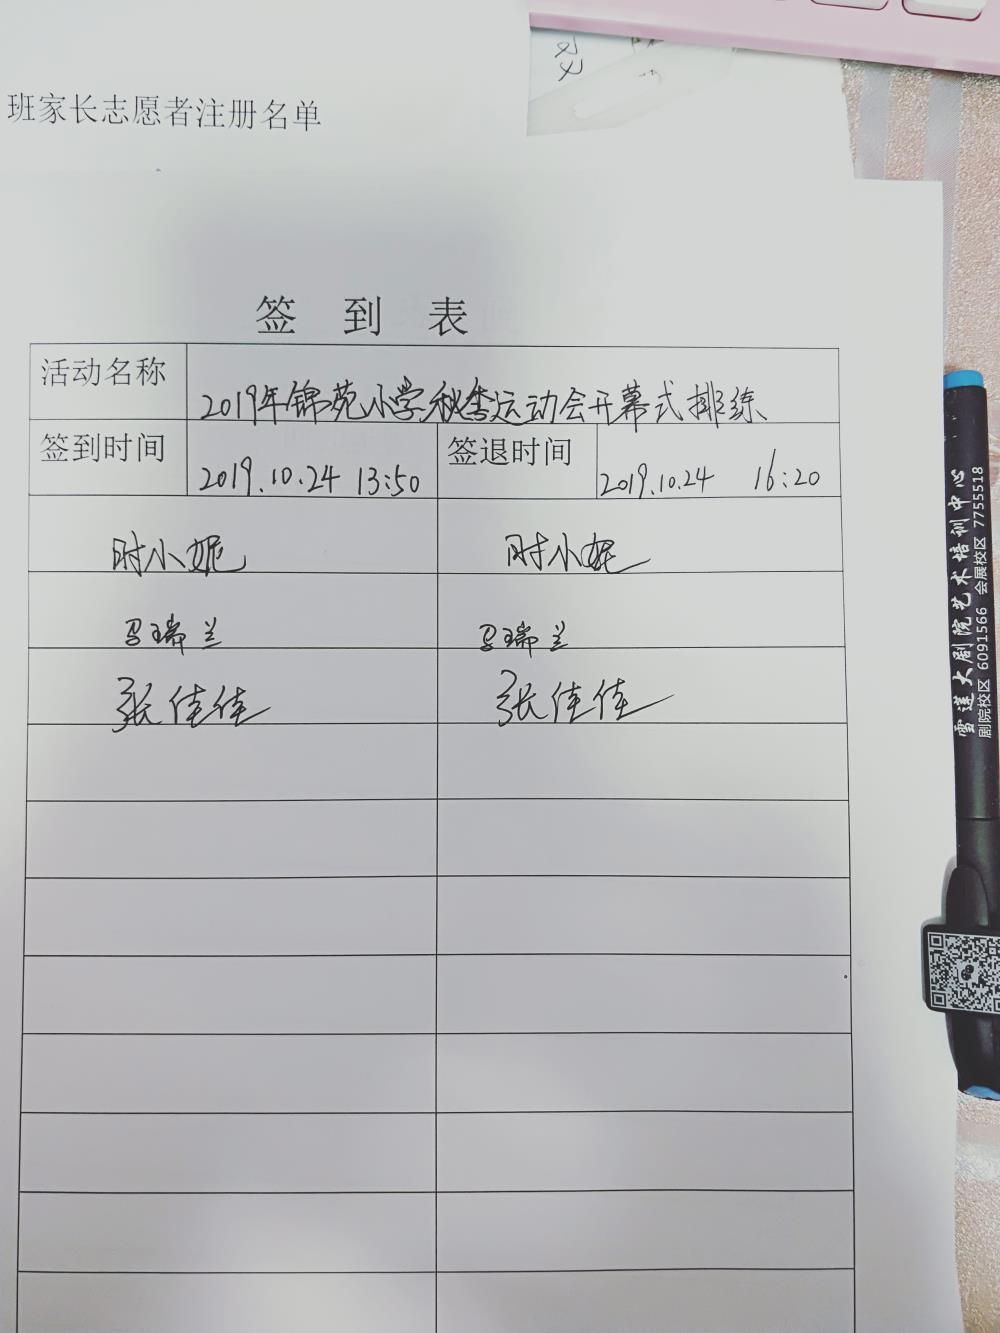 班家长志愿者注册名单
签到表
活动名称 2019年锦苑小学秋季运动会开幕式排练
签到时间 2019.10.24 13:50 签退时间 2019.10.24 16:20
时小妮 时小妮
马瑞兰 马瑞兰
张佳佳 张佳佳
雪莲大剧院艺术培训中心
剧院校区 6091566 会展校区 7755518